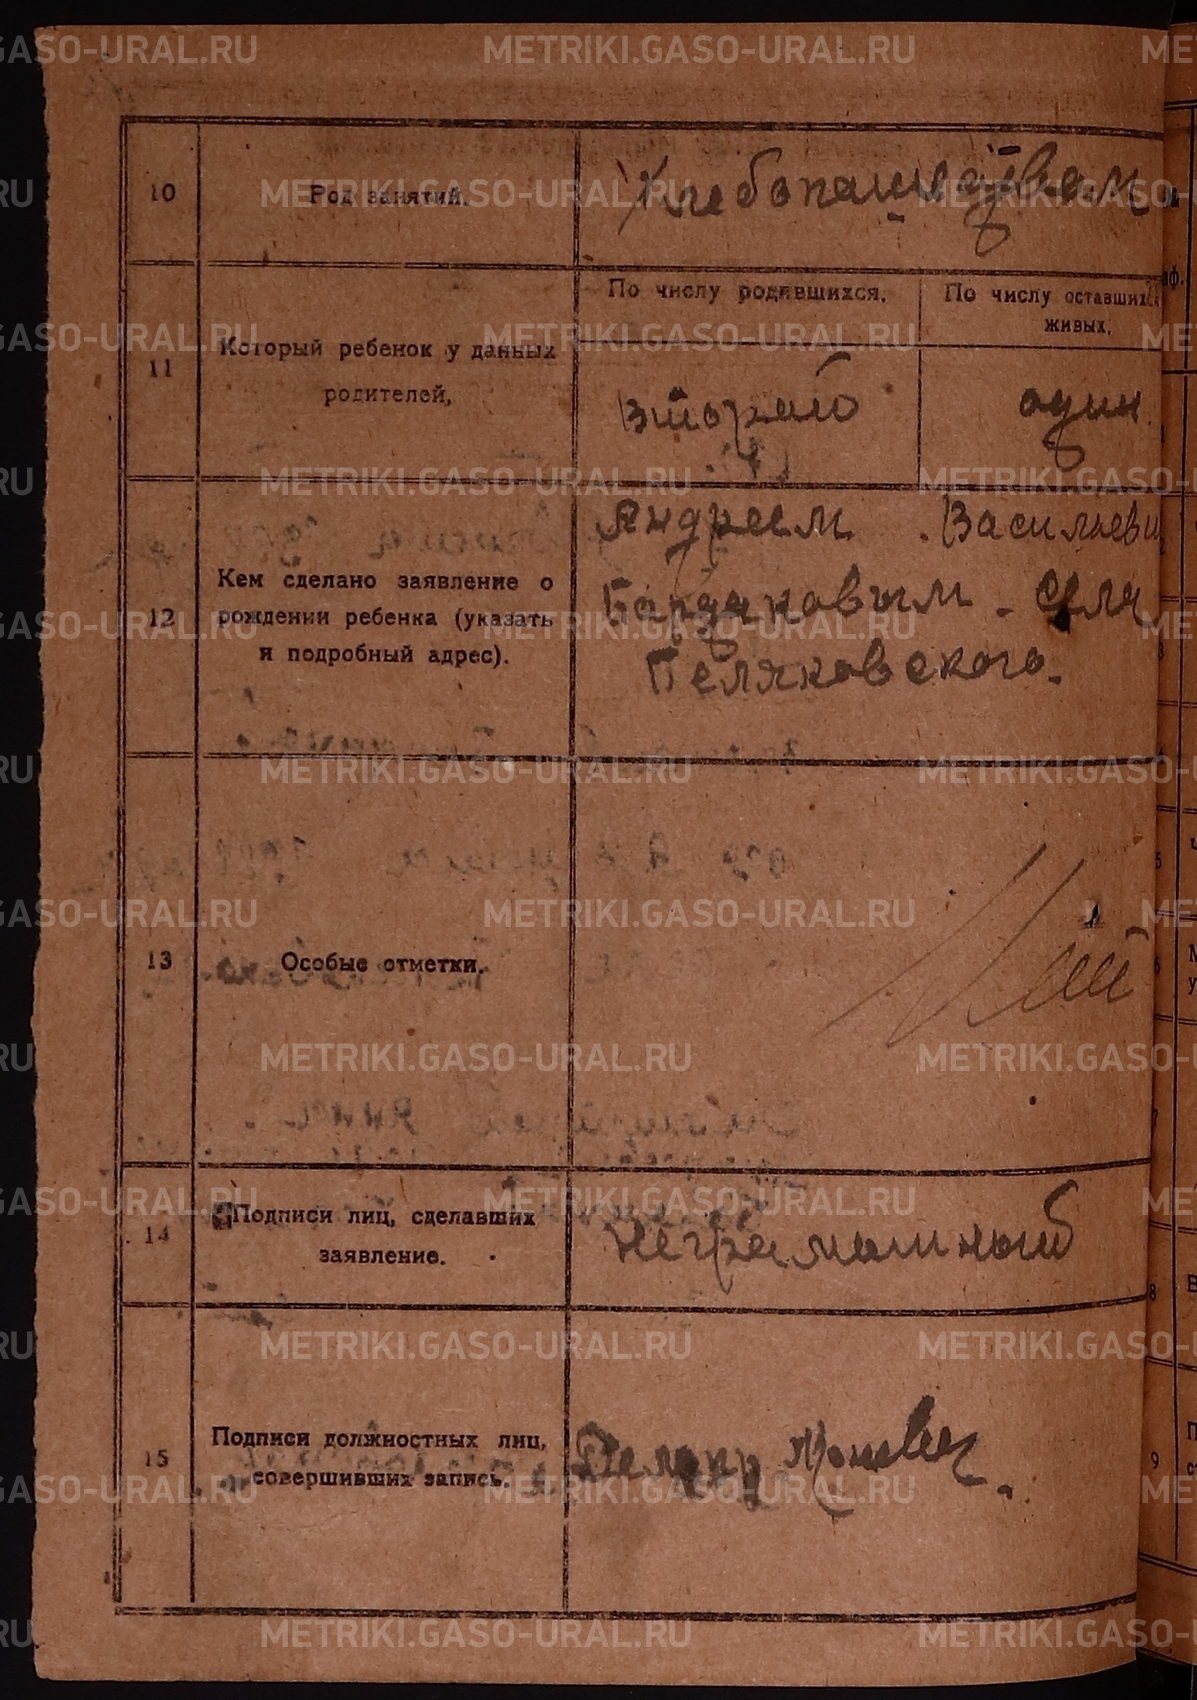 METRIKI.GASO-URAL.RU
10
Род занятий.
Хлебопашеством
11
Который ребенок у данных
родителей,
По числу родившихся.
По числу оставшихся
живых.
второй
один
12
Кем сделано заявление о
рождении ребенка (указать
и подробный адрес).
Андреем Васильеви
Бардаковым. села
13
Особые отметки.
14
Подписи лиц, сделавших
заявление.
неграмотный
15
Подписи должностных лиц,
совершивших запись.